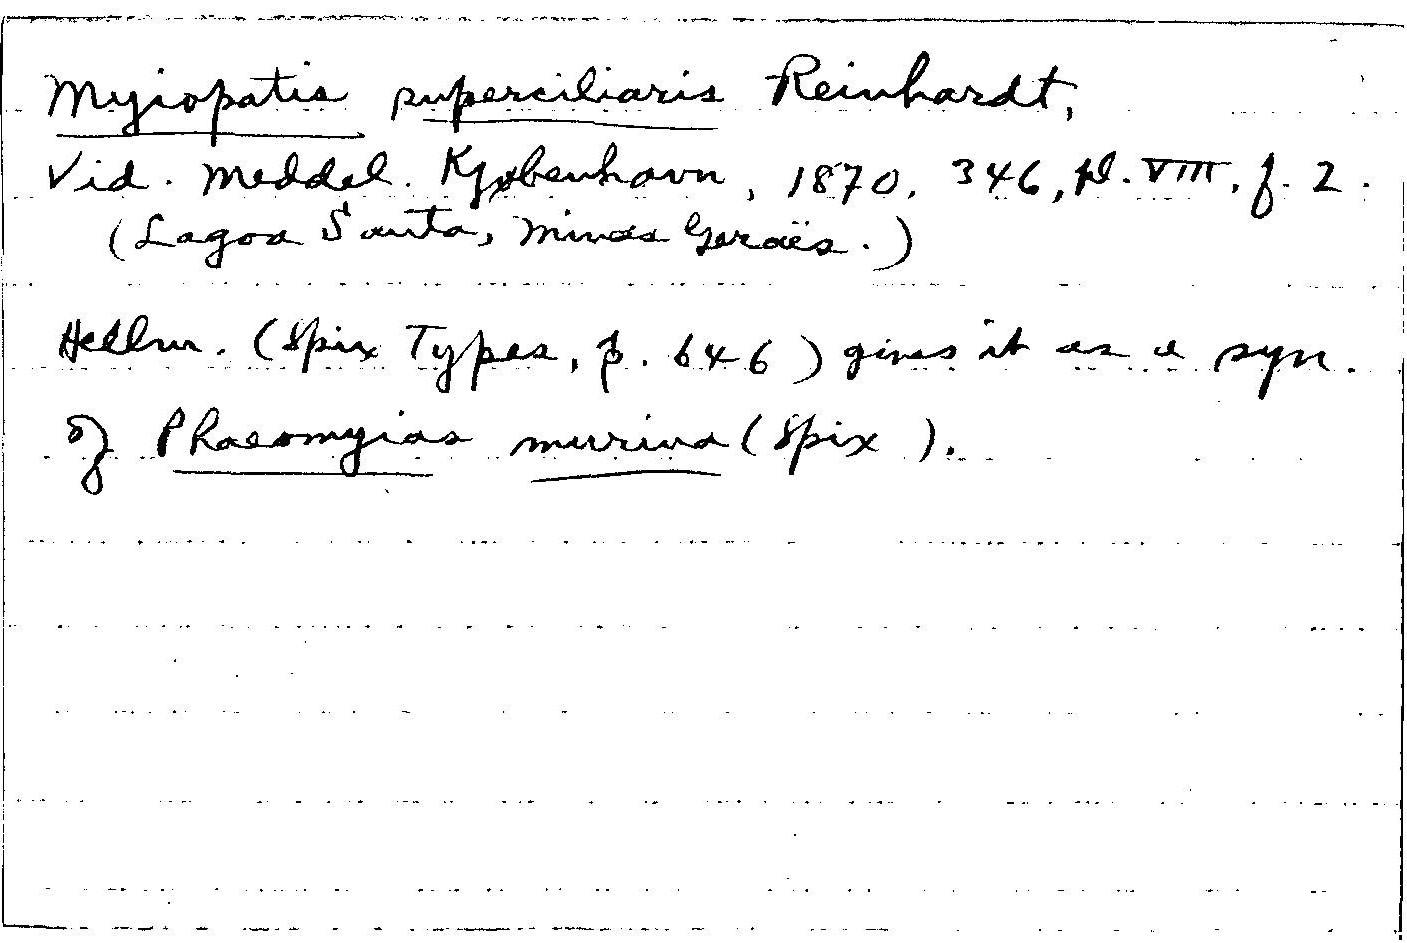 Myiopatis superciliaris Reinhardt,
Vid. Meddel. Kjøbenhavn, 1870, 346, pl. VIII, f. 2.
(Lagoa Santa, Minas Geraës.)
Hellm. (Spix Types, p. 646) gives it as a syn.
of Phaeomyias murina (Spix).